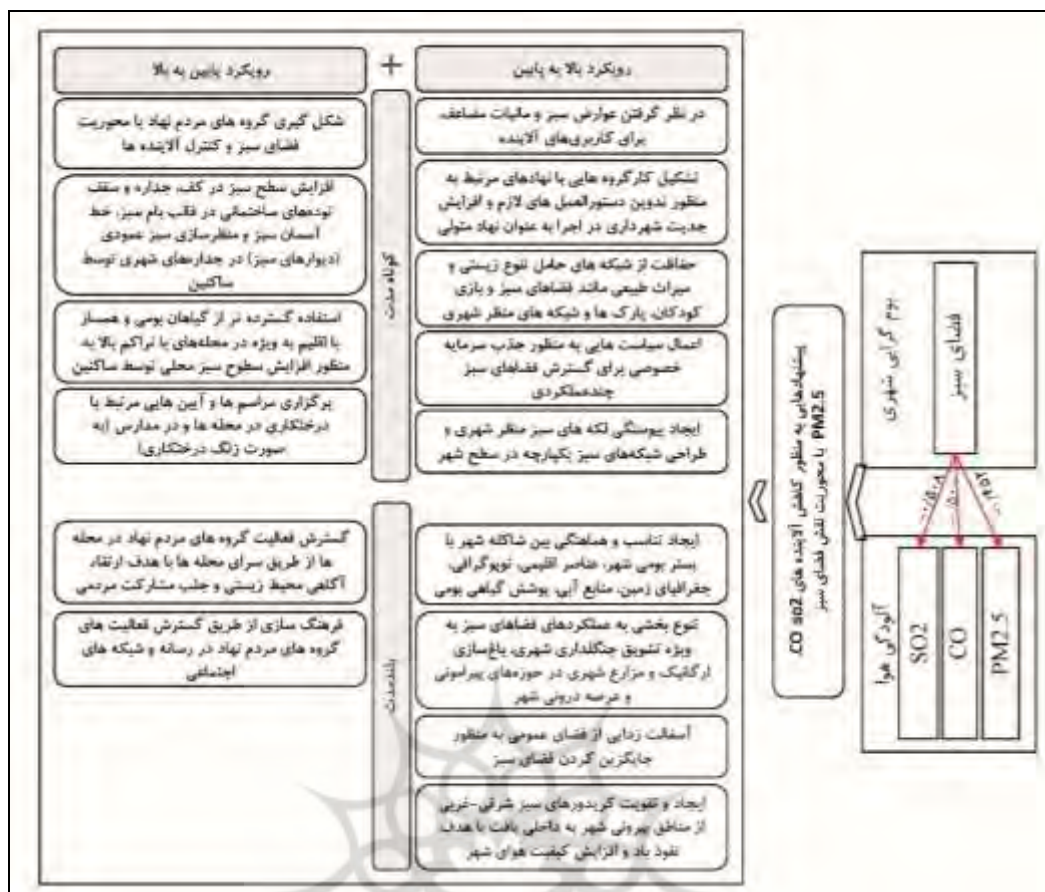 رویکرد بالا به پایین
+
رویکرد پایین به بالا
کوتاه مدت
در نظر گرفتن عوارض سبز و مالیات مضاعف،
برای کاربری‌های آلاینده
تشکیل کارگروه هایی با نهادهای مرتبط به
منظور تدوین دستورالعمل های لازم و افزایش
جدیت شهرداری در اجرا به عنوان نهاد متولی
حفاظت از شبکه های حامل تنوع زیستی و
میراث طبیعی مانند فضاهای سبز و بازی
کودکان، پارک ها و شبکه های منظر شهری
اعمال سیاست هایی به منظور جذب سرمایه
خصوصی برای گسترش فضاهای سبز
چندعملکردی
ایجاد پیوستگی لکه های سبز منظر شهری و
طراحی شبکه‌های سبز یکپارچه در سطح شهر
شکل گیری گروه های مردم نهاد با محوریت
فضای سبز و کنترل آلاینده ها
افزایش سطح سبز در کف، جداره و سقف
توده‌های ساختمانی در قالب بام سبز، خط
آسمان سبز و منظرسازی سبز عمودی
(دیوارهای سبز) در جداره‌های شهری توسط
ساکنین
استفاده گسترده تر از گیاهان بومی و همساز
با اقلیم به ویژه در محله‌های با تراکم بالا به
منظور افزایش سطوح سبز محلی توسط ساکنین
برگزاری مراسم ها و آیین هایی مرتبط با
درختکاری در محله ها و در مدارس (به
صورت زنگ درختکاری)
بلند مدت
ایجاد تناسب و هماهنگی بین شاکله شهر با
بستر بومی شهر، عناصر اقلیمی، توپوگرافی،
جغرافیای زمین، منابع آبی، پوشش گیاهی بومی
تنوع بخشی به عملکردهای فضاهای سبز به
ویژه تشویق جنگلداری شهری، باغ‌سازی
ارگانیک و مزارع شهری در حوزه‌های پیرامونی
و عرصه درونی شهر
آسفالت زدایی از فضای عمومی به منظور
جایگزین کردن فضای سبز
ایجاد و تقویت کریدورهای سبز شرقی-غربی
از مناطق بیرونی شهر به داخلی بافت با هدف
نفوذ باد و افزایش کیفیت هوای شهر
گسترش فعالیت گروه های مردم نهاد در محله
ها از طریق سرای محله ها با هدف ارتقاء
آگاهی محیط زیستی و جلب مشارکت مردمی
فرهنگ سازی از طریق گسترش فعالیت های
گروه های مردم نهاد در رسانه و شبکه های
اجتماعی
پیشنهادهایی به منظور کاهش آلاینده های CO، so2
PM2.5 با محوریت نقش فضای سبز
بوم گرایی شهری
فضای سبز
آلودگی هوا
SO2
CO
PM2.5